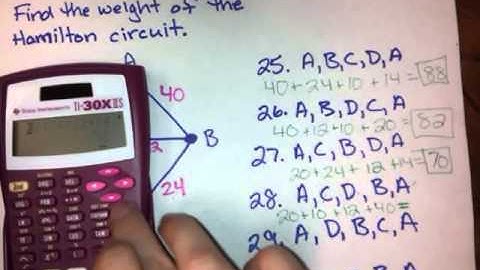 Find the weight of the
Hamilton circuit.
A
40
B
2
24
TEXAS INSTRUMENTS
TI-30X IIS
2nd
25. A,B,C,D,A
40+24+10+14=88
26. A,B,D,C,A
40+12+10+20=82
27. A,C,B,D,A
20+24+12+14=70
28. A,C,D,B,A
20+10+12+40=
29. A,D,B,C,A